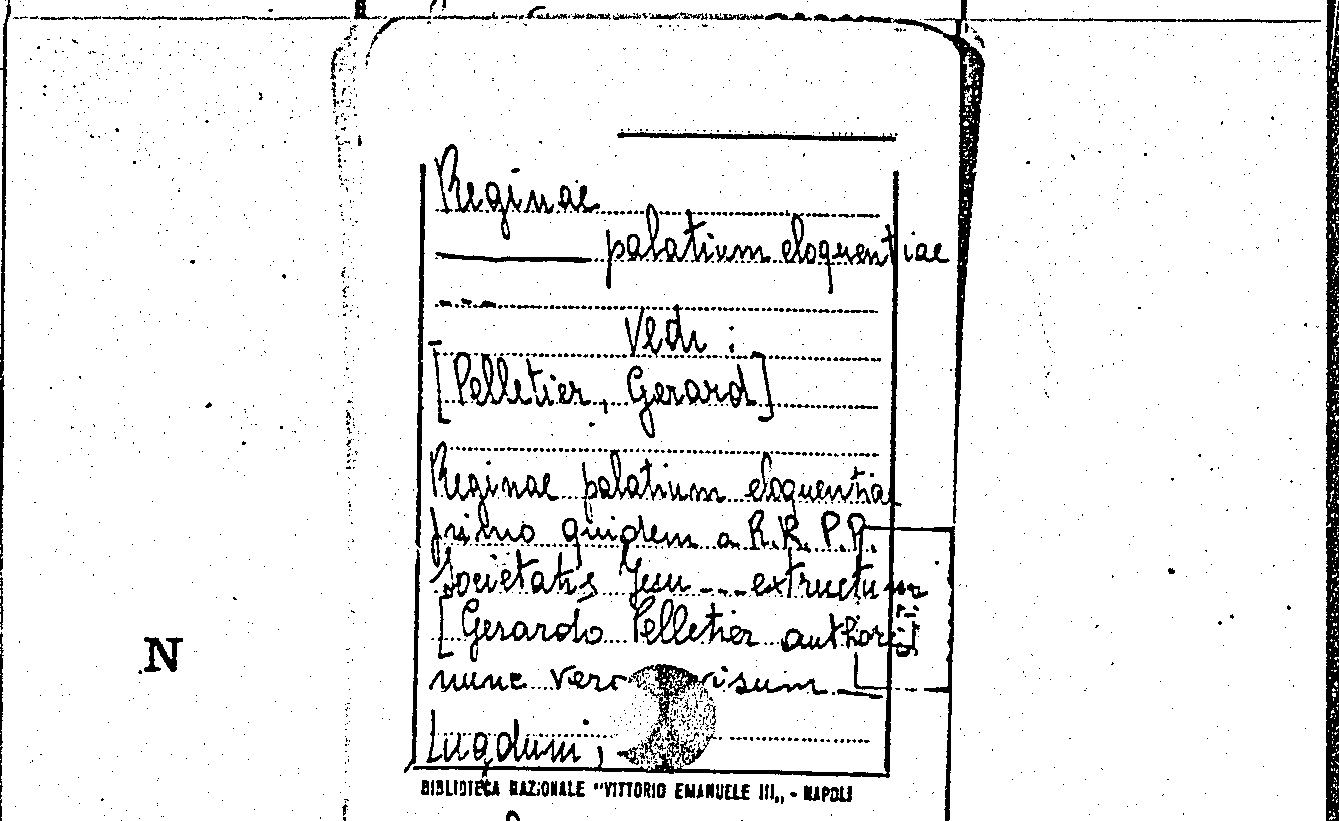 Reginae
palatium eloquentiae
Vedi :
[Pelletier, Gerard]
Reginae palatium eloquentiae
primo quidem a R.R. P.P.
Societatis Jesu --- extructum
[Gerardo Pelletier authore]
nunc vero
Lugduni,
N
BIBLIOTECA NAZIONALE "VITTORIO EMANUELE III„ - NAPOLI